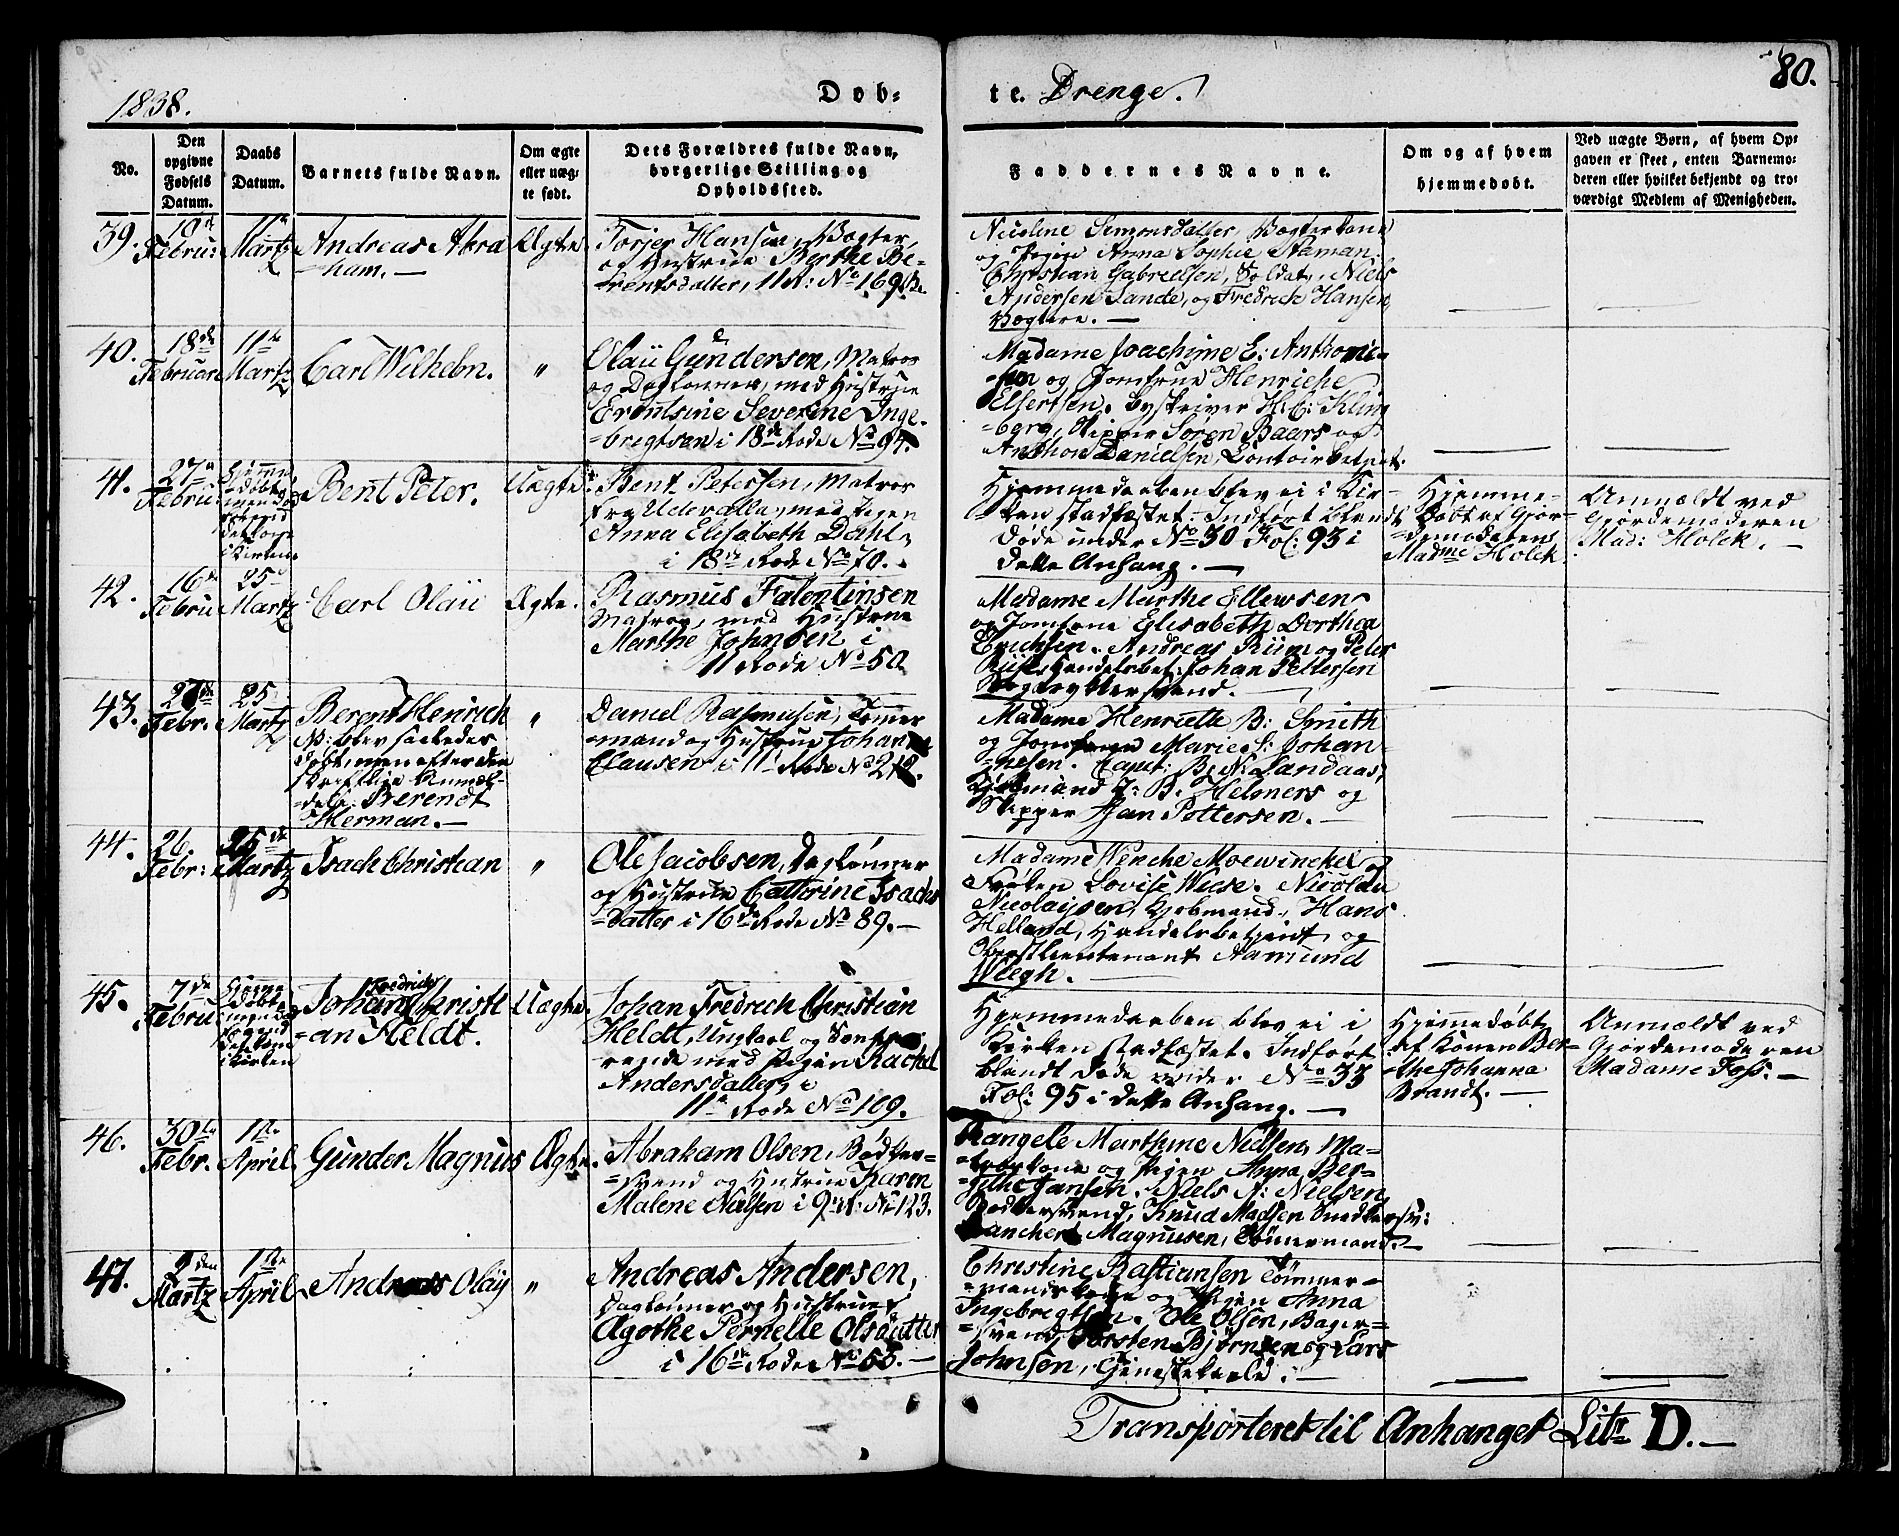 1838.
Dob-
te. Drenge.
80.
No.
Den opgivne Fødsels Datum.
Daabs Datum.
Barnets fulde Navn.
Om ægte eller uægte født.
Dets Forældres fulde Navn, borgerlige Stilling og Opholdssted.
Faddernes Navne.
Om og af hvem hjemmedøbt.
Ved uægte Børn, af hvem Opgaven er skeet, enten Barnemoderen eller hvilket bekjendt og troværdigt Medlem af Menigheden.
39.
Februr:
Martz
Andreas Abra
=ham.—
Ægte
Torjer Hansen, Vægter,
og Hustrue Berthe Be-
rentsdatter, 11 R: No 169.
Nicoline Simonsdatter, Vægterkone
og Pigen Anna Sophie Aaman.
Christian Gabrielsen, Soldat, Niels
Andersen Sande, og Fredrich Hansen
Vægtere.—
40.
18de
Februar
11te
Martz
Carl Wilhelm.
"
Olaü Gundersen, Matros
og Daglønner, med Hustrue
Erentsine Severine Inge-
=bregtsen i 18de Rode No 94.
Madame Joachime E: Anthonie
=sen og Jomfrue Henriche
Elfertsen. Byskriver H: C: Kling
=berg, Skipper Søren Baars og
Anthon Danielsen, Contoirbetjent.
41.
27de
Februr
Hjemme
døbt,
Bent Peter.
Uægte
Bent Petersen, Matros
fra Udevalla, med Pigen
Anna Elisabeth Dahl,
i 18de Rode No 70.
Hjemmedaaben blev ei i Kir-
ken stadfæstet. Indført blandt
Døde under No 30 Fol: 95 i
dette Anhang.—
Hjemme-
døbt af Gjor-
=demoderen
Madme Holck.
Anmældt ved
Gjordemoderen
Mad: Holck.—
42.
16de
Februr
25
Martz
Carl Olaü
Ægte.
Rasmus Falentinsen
Matros, med Hustrue
Marthe Johnsen i
11 Rode No 50
Madame Marthe Ellewsen
og Jomfrue Elisabeth Dorthea
Erichsen. Andreas Riim og Peter
Riis, Handelsbet: Johan Pettersen
43.
27de
Febr.
25
Martz
Berent Henrich
N: blev saaledes
døbt, men efter den
skriftlige Anmæl-
=delse: Berendt
Herman.—
"
Daniel Rasmusen, Tømer
=mand og Hustrue Johanne
Clausen i 11 Rode No 212.
Madame Henriette B: Smith
og Jomfrue Marie S: Johan-
=nesen. Capt: B. N: Landaas,
Kjøbmand J: B. Helmers og
Skipper Jan Pottersen.—
44.
26.
Febr:
25de
Martz
Isach Christian
"
Ole Jacobsen, Daglønner
og Hustrue Cathrine Isachs
=datter i 16de Rode No 89.—
Madame Wenche Moewinckel
Frøken Lovise Wiese. Nicolai
Nicolaysen, Kjøbmand, Hans
Helland, Handelsbetjent, og
Oberstlieutenant Aamund
Wiegh.
45.
7de
Februr
Hjemme
døbt
Johan Fredrich Christi
=an Heldt.
Uægte.
Johan Fredrich Christian
Heldt, Ungkarl og
med Pigen Rachel
Andersdatter, i
11te Rode No 109.
Hjemmedaaben blev ei i
Kirken stadfæstet. Indført
blandt Døde under No 33
Fol: 95 i dette Anhang.—
Hjemmedøbt
af Konen Ber-
the Johanna
Brandt.—
Anmældt ved
Gjordemoderen
Madame Foss.—
46.
30te
Febr.
1ste
April.
Gunder Magnus
Ægte.
Abraham Olsen, Bødker-
=svend og Hustrue Karen
Malene Nielsen i 9de R: No 123.
Rangele Marthine Nielsen, Ma-
=troskone og Pigen Anna Ber-
githe Jansen. Niels A: Nielsen,
Bødkersvend, Knud Madsen Snedkersv:
Magnusen, Tømermand.—
47.
9den
Martz
1ste
April
Andreas Olaÿ
"
Andreas Andersen,
Daglønner og Hustrue
Ægothe Pernelle Olsdatter
i 16de Rode No 55.—
Christine Bastiansen Tømmer-
=mandskone og Pigen Anna
Ingebregtsen. Ole Olsen, Bager-
=svend, Torsten Bjørnsen og Lars
Johnsen, Tjenestekarle.—
Transporteret til Anhanget Litr D.—